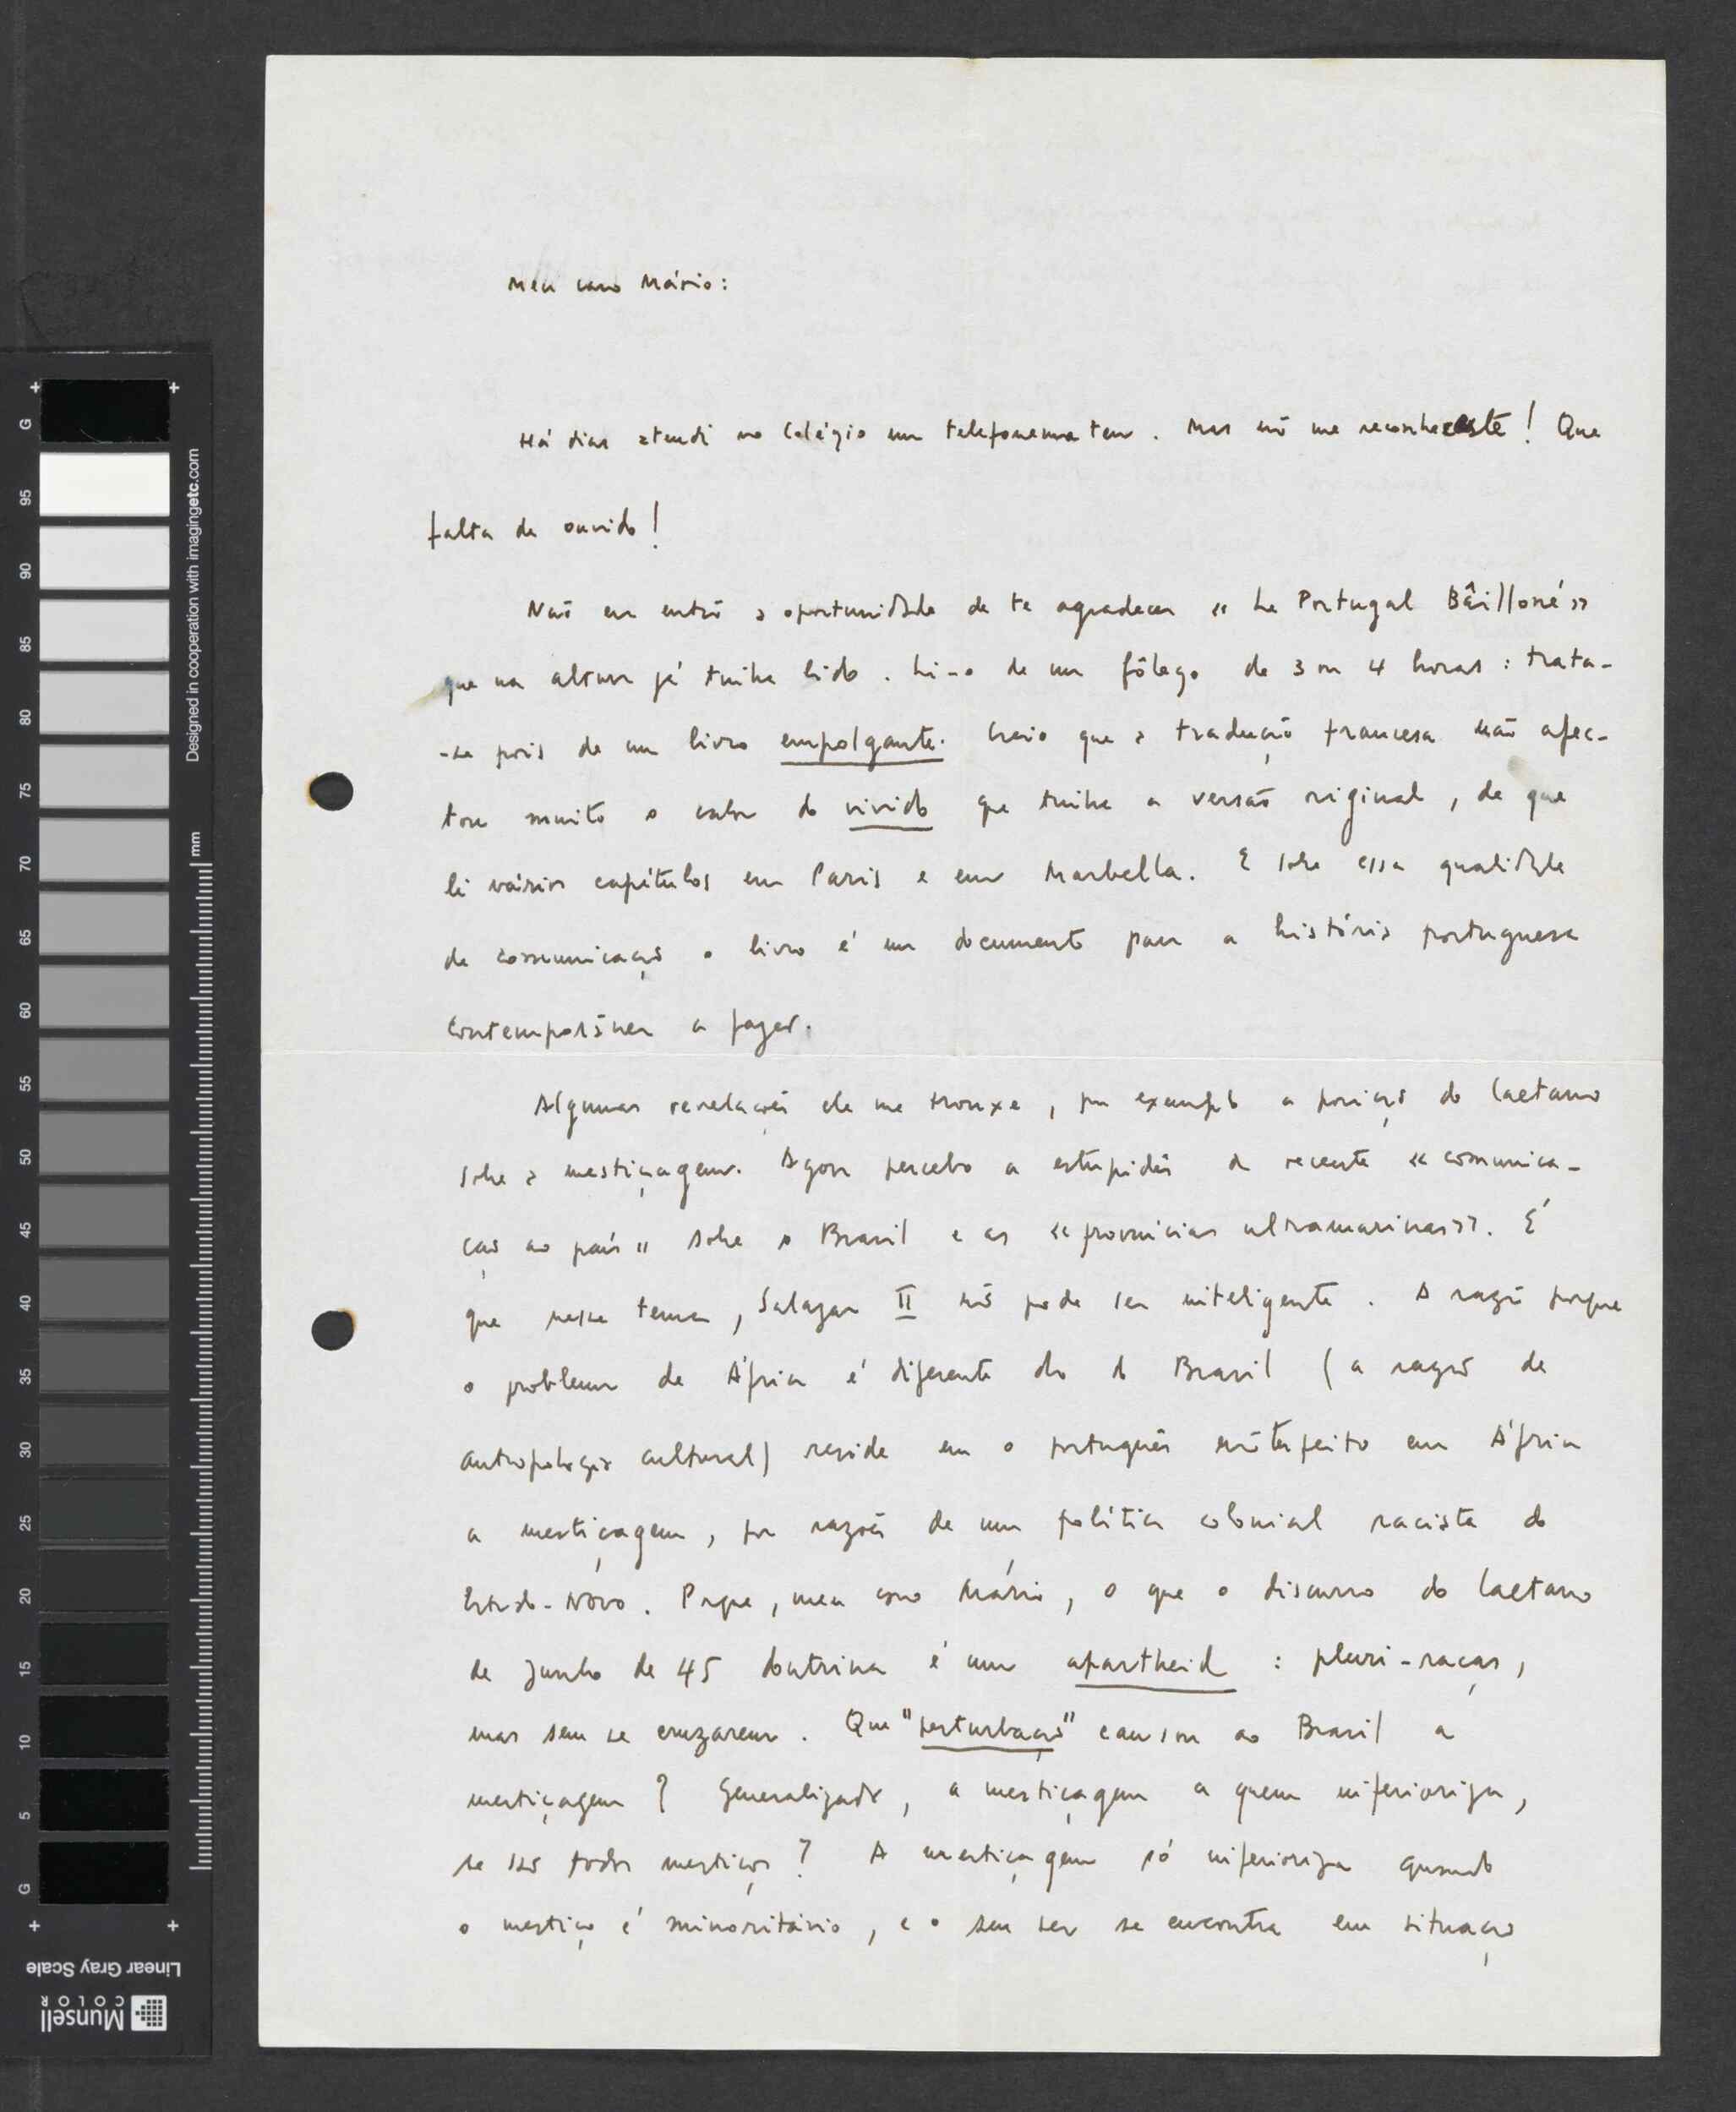 Meu caro Mário:
Há dias atendi no Colégio um telefonema teu. Mas não me reconheceste! Que
falta de ouvido!
Não era então a oportunidade de te agradecer « Le Portugal Bâilloné»
que na altura já tinha lido. Li-o de um fôlego de 3 ou 4 horas: trata-
-se pois de um livro empolgante. Creio que a tradução francesa não afec-
tou muito o calor do vivido que tinha a versão original, de que
li vários capítulos em Paris e em Marbella. E sobre essa qualidade
de comunicação o livro é um documento para a história portuguesa
contemporânea a fazer.
Algumas revelações ele me trouxe, por exemplo a posição do Caetano
sobre a mestiçagem. Agora percebo a estupidez da recente « comunica-
ção ao país » sobre o Brasil e as «províncias ultramarinas». É
que nesse tema, Salazar II não pode ser inteligente. A razão porque
o problema de África é diferente do do Brasil (a razão de
antropologia cultural) reside em o português não ter feito em África
a mestiçagem, por razões de uma política colonial racista do
Estado-Novo. Porque, meu caro Mário, o que o discurso do Caetano
de Junho de 45 doutrina é um apartheid: pluri-raças,
mas sem se cruzarem. Que "perturbação" causou ao Brasil a
mestiçagem? Generalizada, a mestiçagem a quem inferioriza,
se são todos mestiços? A mestiçagem só inferioriza quando
o mestiço é minoritário, e o seu ser se encontra em situação
G 95 90 85 80 75 70 65 60 55 50 45 40 35 30 25 20 15 10 5 G
Designed in cooperation with imagingetc.com
mm
Linear Gray Scale
Munsell
COLOR